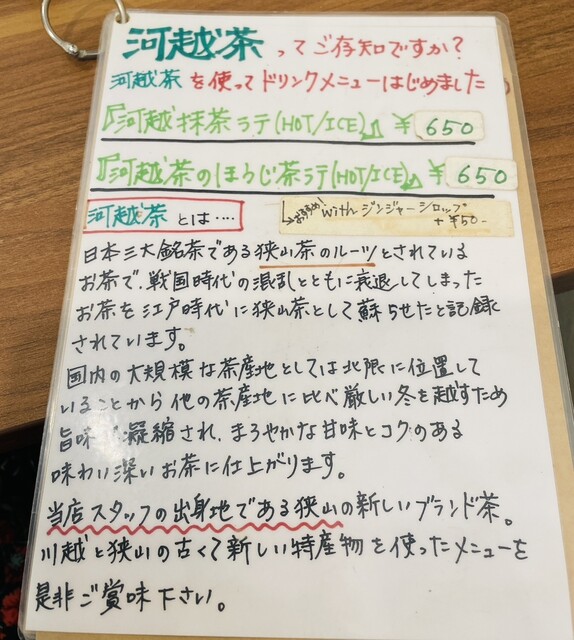 河越茶ってご存知ですか?
河越茶を使ってドリンクメニューはじめました
『河越抹茶ラテ(HOT/ICE)』 ¥650
『河越茶のほうじ茶ラテ(HOT/ICE)』 ¥650
河越茶とは‥‥
おすすめ! withジンジャーシロップ
+¥50-
日本三大銘茶である狭山茶のルーツとされている
お茶で、戦国時代の混乱とともに衰退してしまった
お茶を江戸時代に狭山茶として蘇らせたと記録
されています。
国内の大規模な茶産地としては北限に位置して
いることから他の茶産地に比べ厳しい冬を越すため
旨味 凝縮され、まろやかな甘味とコクのある
味わい深いお茶に仕上がります。
当店スタッフの出身地である狭山の新しいブランド茶。
川越と狭山の古くて新しい特産物を使ったメニューを
是非ご賞味下さい。